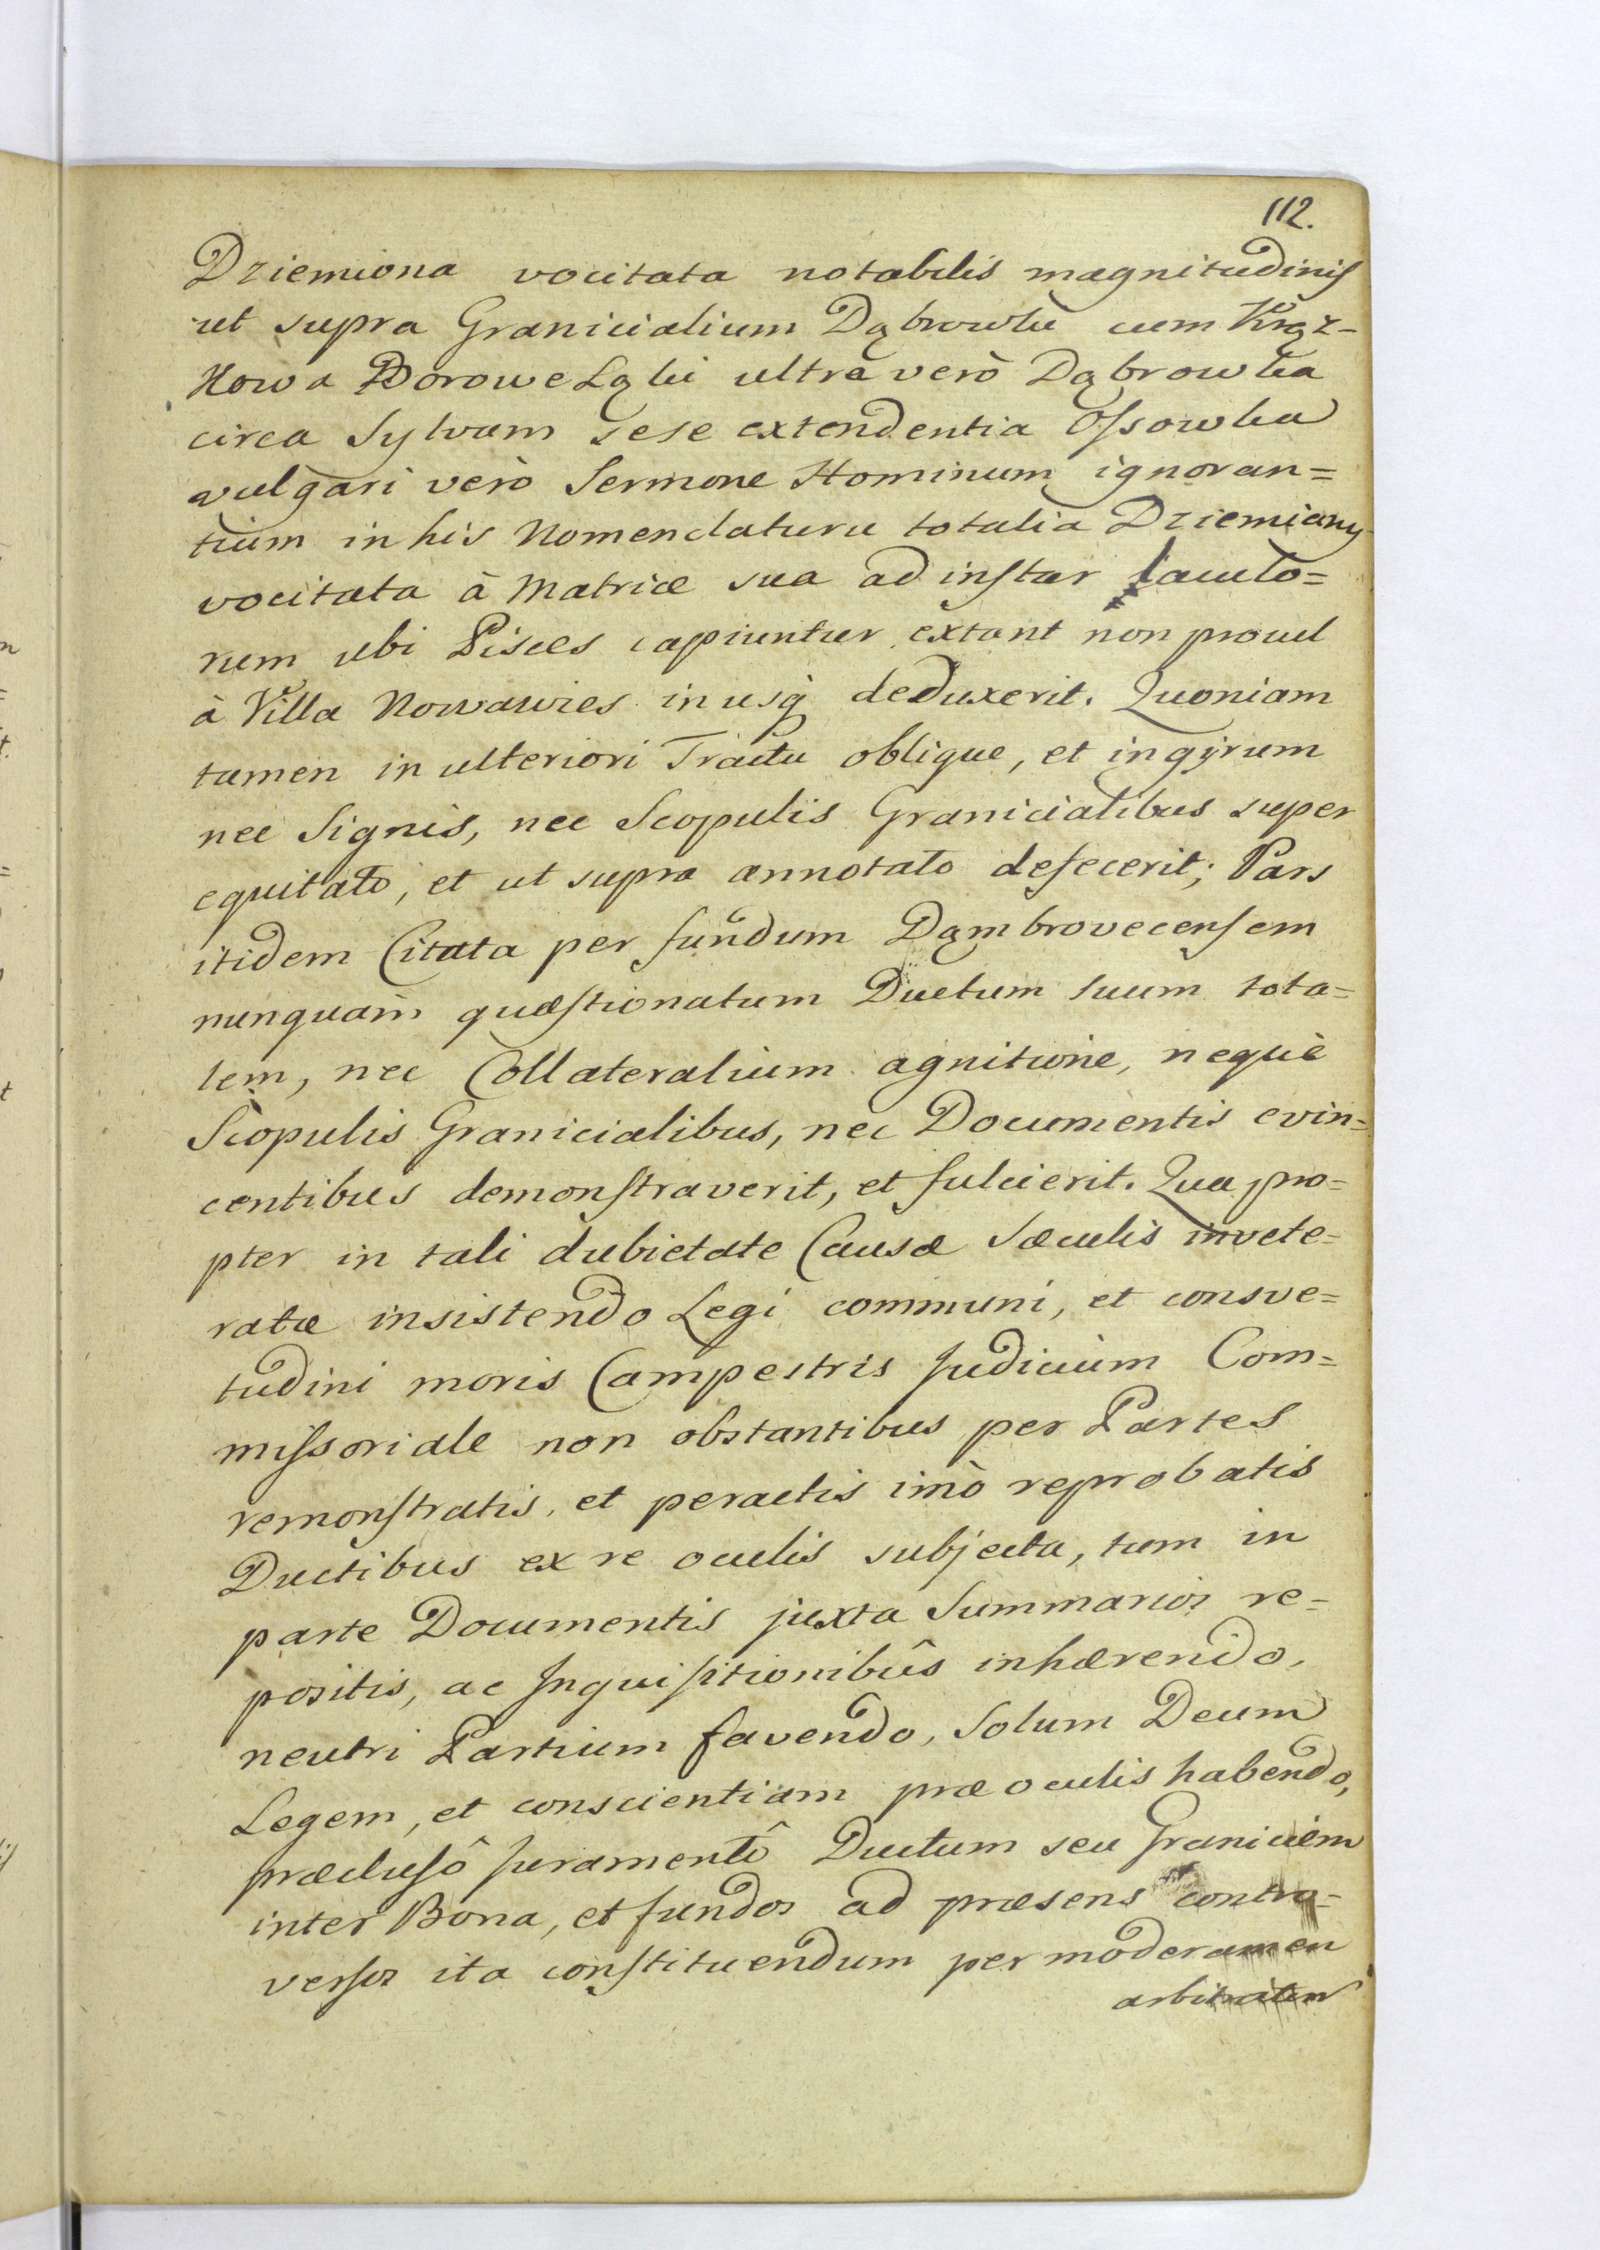 112.
Dziemiona vocitata notabilis magnitudinis
ut supra Granicialium Dąbrowki cum Krąz-
kowa Borowe Ląki ultra verò Dąbrowka
circa Sylvam sese extendentia Ossowka
vulgari verò Sermone Hominum ignoran=
tium in his Nomenclatura totalia Dziemiany
vocitata à Matrice sua ad instar lacuto=
rum ubi Pisces capiuntur extant non procul
à Villa Nowawies in usq deduxerit. Quoniam
tamen in ulteriori Tractu oblique, et in gÿrum
nec Signis, nec Scopulis Granicialibus super
equitato, et ut supra annotato defecerit; Pars
itidem Citata per fundum Dąmbrovecensem
nunquam quæstionatum Ductum suum tota=
lem, nec Collateralium agnitione, nequè
Scopulis Granicialibus, nec Documentis evin=
centibus demonstraverit, et fulcierit. Qua pro=
pter in tali dubietate Causæ Sæculis invete=
ratæ insistendo Legi communi, et consve=
tudini moris Campestris Judicium Com=
missoriale non obstantibus per Partes
remonstratis, et peractis imò reprobatis
Ductibus ex re oculis subjecta, tum in
parte Documentis juxta Summarios re=
positis, ac Inquisitionibûs inhærendo,
neutri Partium favendo, Solum Deum
Legem, et conscientiam præ oculis habendo,
præclusô Juramentô Ductum seu Graniciem
inter Bona, et fundos ad præsens contro=
versos ita constituendum per moderamen
arbitratur